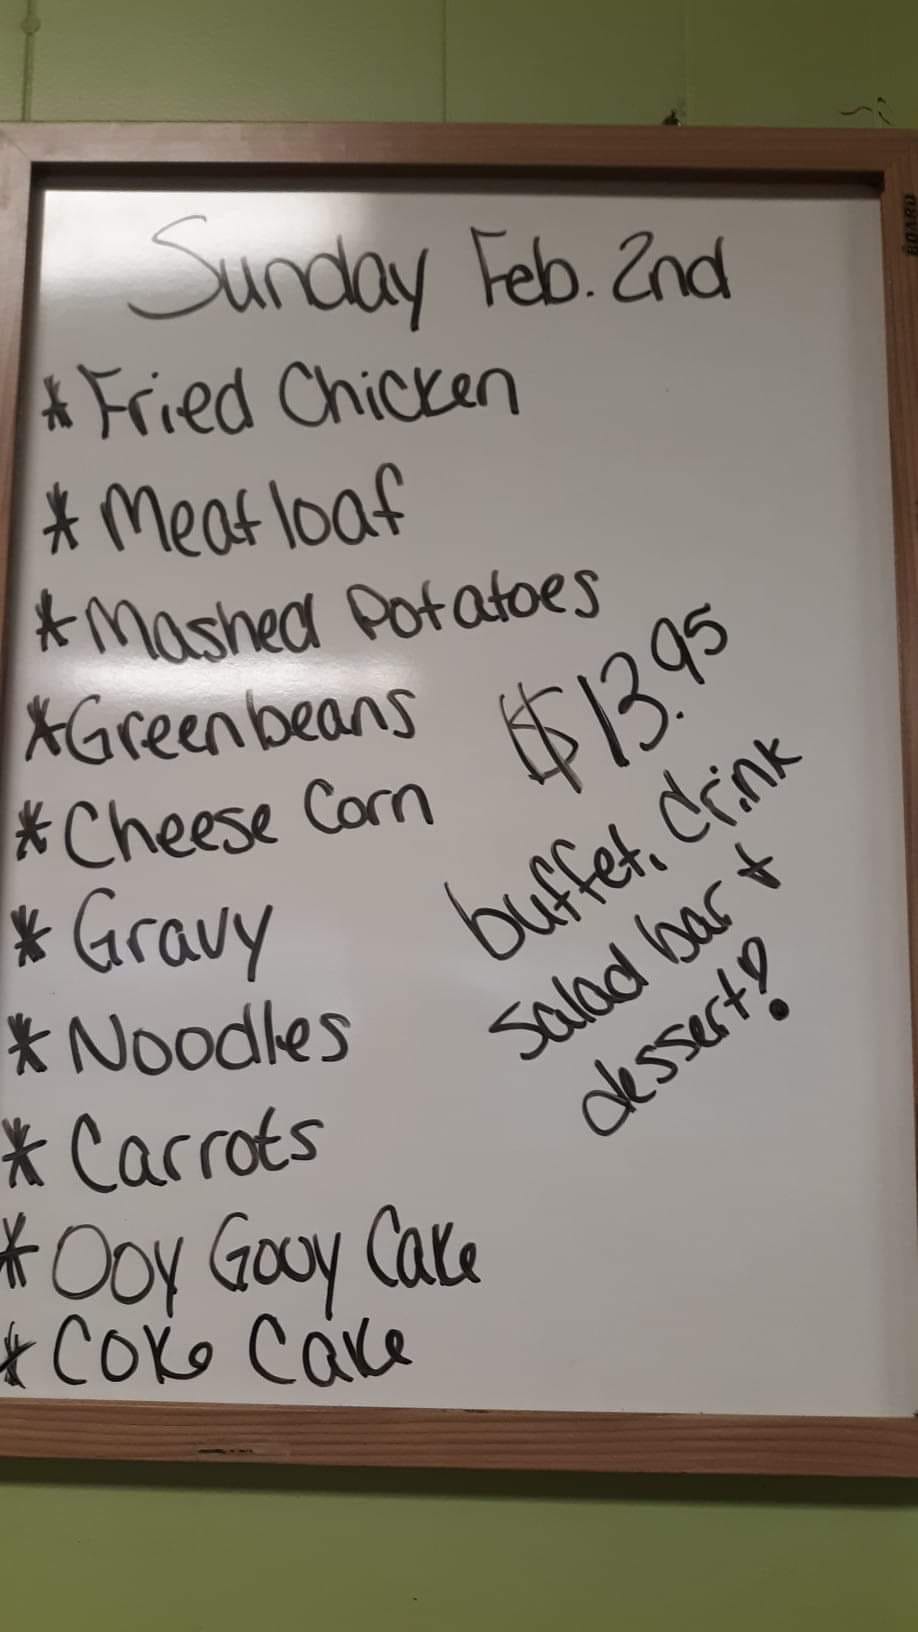 Sunday Feb. 2nd
* Fried Chicken
* Meatloaf
* Mashed Potatoes
* Greenbeans
* Cheese Corn
* Gravy
* Noodles
* Carrots
* Ooy Gouy Cake
* Coke Cake
$13.95
buffet, drink
salad bar +
dessert!